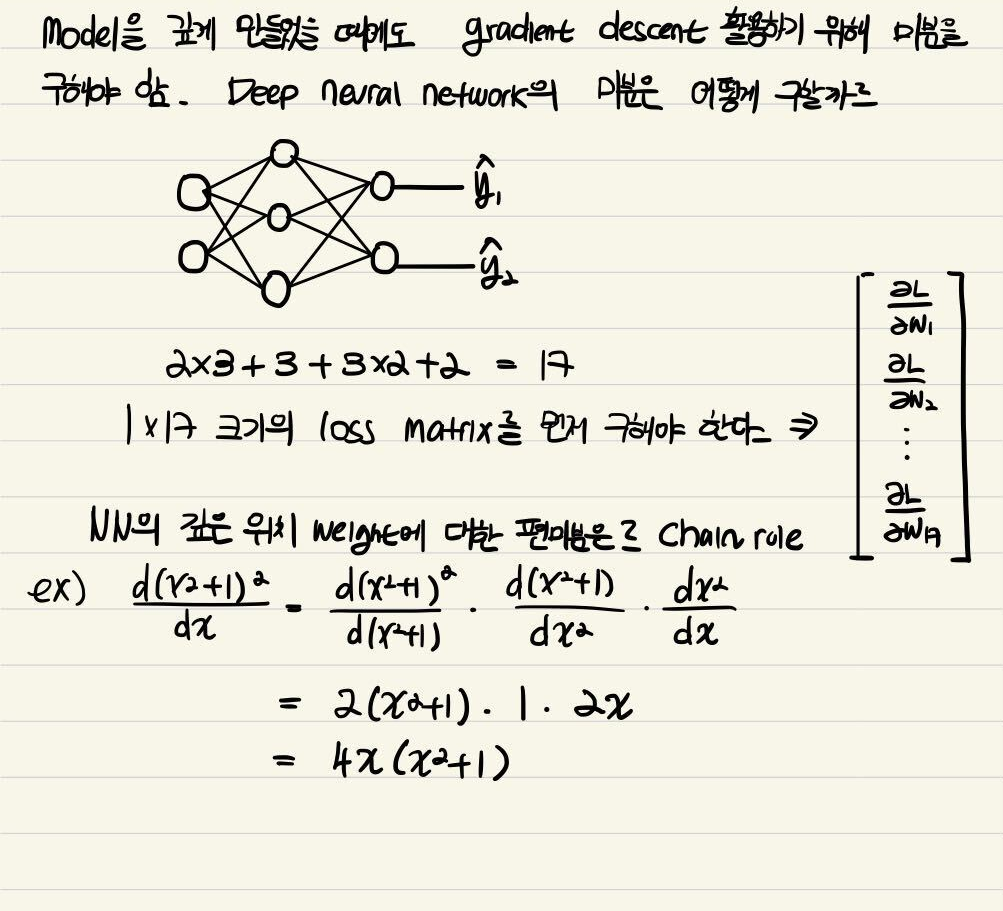 Model을 깊게 만들었을 때에도 gradient descent 활용하기 위해 미분을
구해야 함. Deep neural network의 미분은 어떻게 구할까
ŷ₁
ŷ₂
2×3+3+3×2+2 = 17
1×17 크기의 loss matrix를 먼저 구해야 한다 ⇒ [∂L/∂W₁ ∂L/∂W₂ ⋮ ∂L/∂W₁₇]
NN의 깊은 위치 weight에 대한 편미분은 Chain role
ex) d(x²+1)²/dx = d(x²+1)²/d(x²+1) · d(x²+1)/dx² · dx²/dx
= 2(x²+1) · 1 · 2x
= 4x(x²+1)